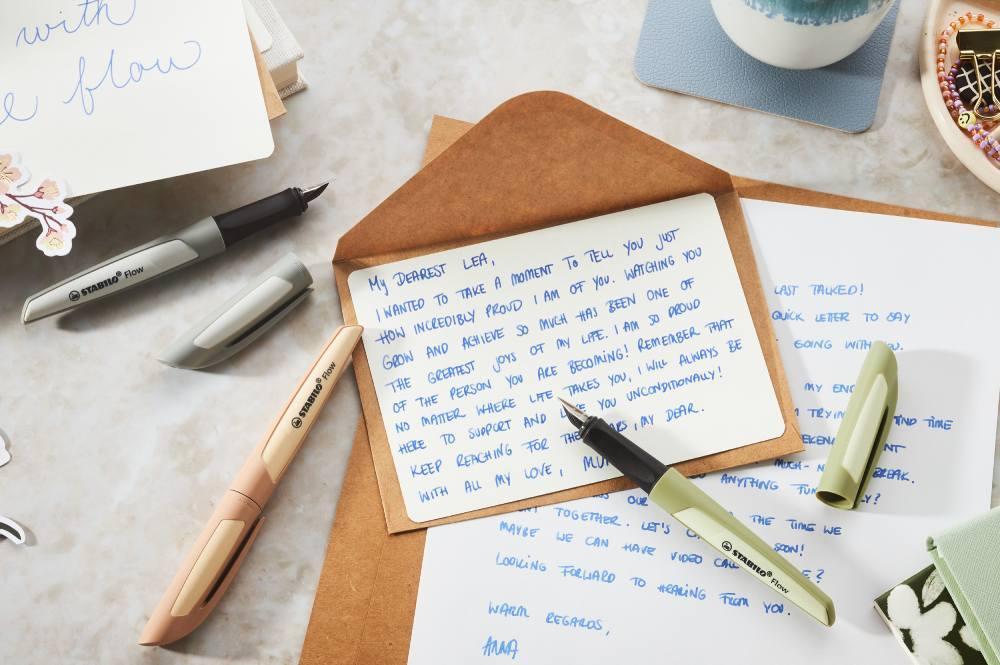 with
flow
STABILO® Flow
STABILO® Flow
My DEAREST LEA,
I WANTED TO TAKE A MOMENT TO TELL YOU JUST
HOW INCREDIBLY PROUD I AM OF YOU. WATCHING YOU
GROW AND ACHIEVE SO MUCH HAS BEEN ONE OF
THE GREATEST JOYS OF MY LIFE. I AM SO PROUD
OF THE PERSON YOU ARE BECOMING! REMEMBER THAT
NO MATTER WHERE LIFE TAKES YOU, I WILL ALWAYS BE
HERE TO SUPPORT AND YOU UNCONDITIONALLY!
KEEP REACHING FOR THE , MY DEAR.
WITH ALL MY LOVE,
LAST TALKED!
QUICK LETTER TO SAY
GOING WITH YOU.
MY
FIND TIME
BREAK.
ANYTHING
TOGETHER. LET'S THE TIME WE
MAYBE WE CAN HAVE VIDEO SOON!
LOOKING FORWARD TO HEARING FROM YOU.
WARM REGARDS,
ANNA
STABILO® Flow